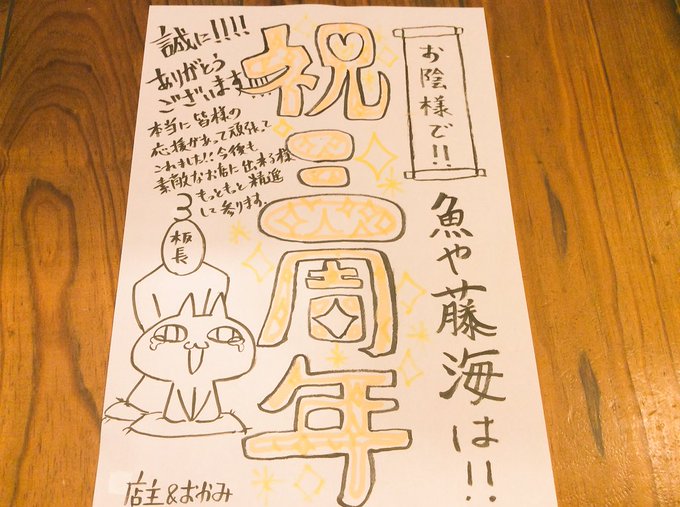 お陰様で!!
魚や藤海は!!
祝三周年
誠に!!!!
ありがとう
ございます
本当に皆様の
応援があって頑張って
これました!!今後も
素敵なお店に出来る様
もっともっと精進
して参ります。
板長
店主&おかみ